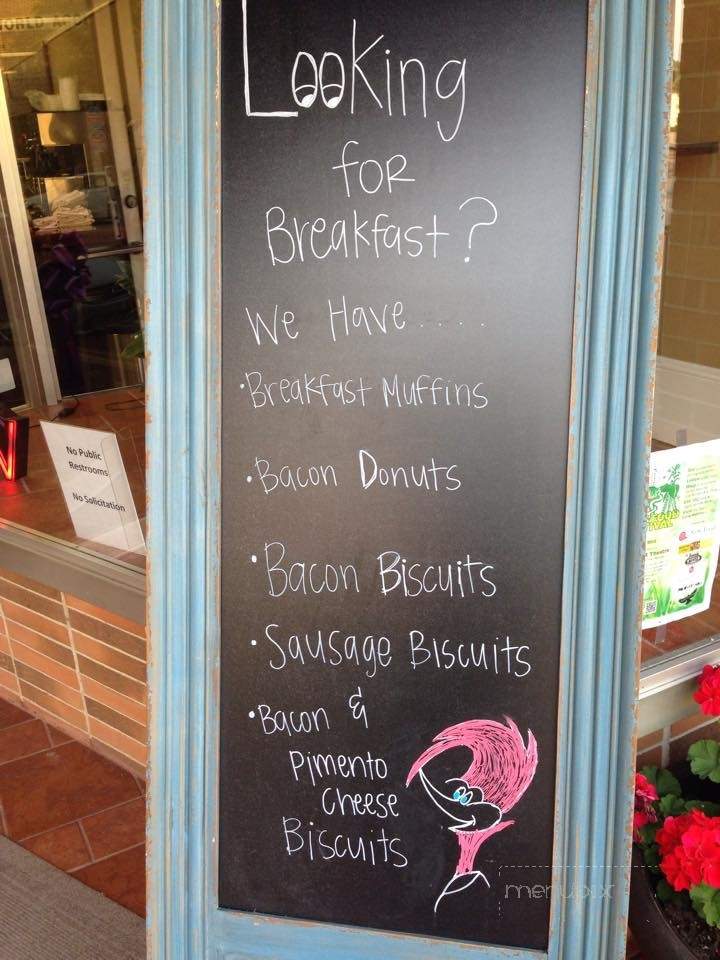 Looking
for
Breakfast?
We Have....
•Breakfast Muffins
•Bacon Donuts
•Bacon Biscuits
•Sausage Biscuits
•Bacon &
Pimento
Cheese
Biscuits
No Public
Restrooms
No Solicitation
menupix